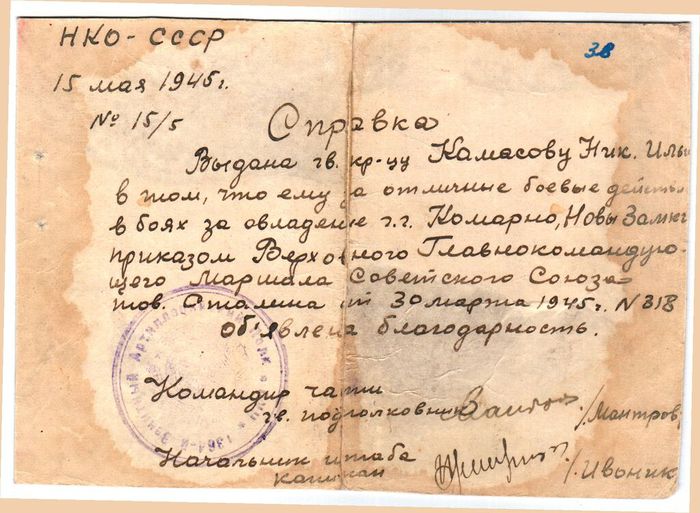 НКО - СССР
38
15 мая 1945 г.
№ 15/5
Справка
Выдана гв. кр-цу Камасову Ник. Ильи
в том, что ему за отличные боевые действ
в боях за овладение г.г. Комарно, Новы Замки
приказом Верховного Главнокомандую-
щего Маршала Советского Союза
тов. Сталина от 30 марта 1945 г. N 318
об'явлена благодарность.
Командир части
гв. подполковник /Мантров/
Начальник штаба
капитан /Ивоник
1364-й Зенитный Артиллерийский полк